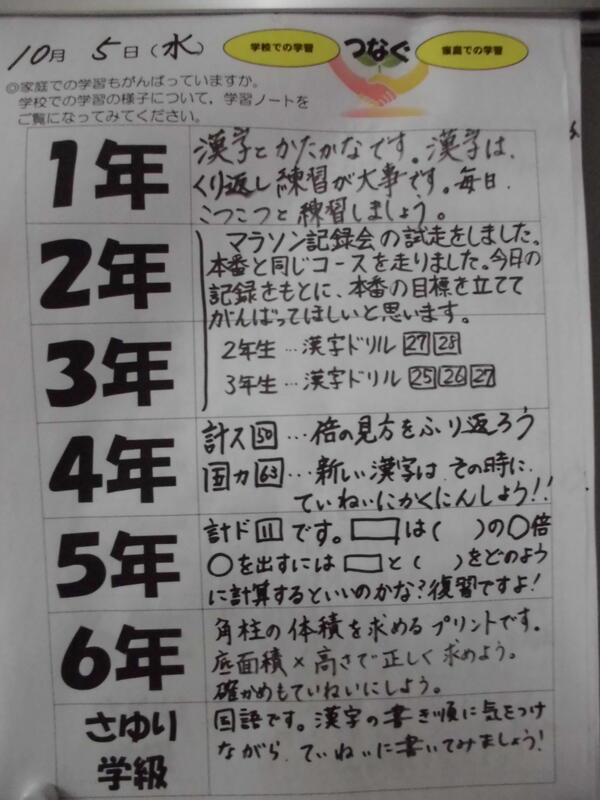 10月 5日(水)
学校での学習 つなぐ 家庭での学習
◎家庭での学習もがんばっていますか。
学校での学習の様子について，学習ノートを
ご覧になってみてください。
1年
漢字とかたかなです。漢字は、
くり返し練習が大事です。毎日、
こつこつと練習しましょう。
2年
マラソン記録会の試走をしました。
本番と同じコースを走りました。今日の
記録をもとに、本番の目標を立てて
がんばってほしいと思います。
3年
2年生…漢字ドリル 27 28
3年生…漢字ドリル 25 26 27
4年
計ス 50 …倍の見方をふり返ろう
国カ 63 …新しい漢字は、その時に、
ていねいにかくにんしよう!!
5年
計ド 11 です。□は( )の○倍
○を出すには□と( )をどのよう
に計算するといいのかな?復習ですよ!
6年
角柱の体積を求めるプリントです。
底面積×高さで正しく求めよう。
確かめもていねいにしよう。
さゆり
学級
国語です。漢字の書き順に気をつけ
ながら、ていねいに書いてみましょう!